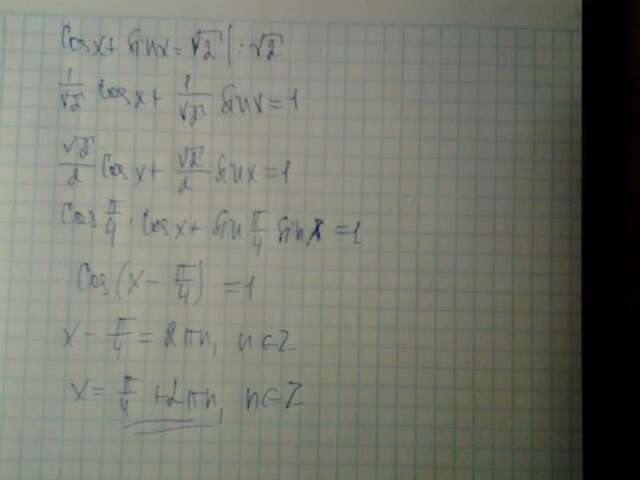 Cosx + Sinx = √2 | : √2
1/√2 Cosx + 1/√2 Sinx = 1
√2/2 Cosx + √2/2 Sinx = 1
Cos π/4 · Cosx + Sin π/4 Sinx = 1
Cos(x - π/4) = 1
x - π/4 = 2πn, n∈Z
x = π/4 + 2πn, n∈Z